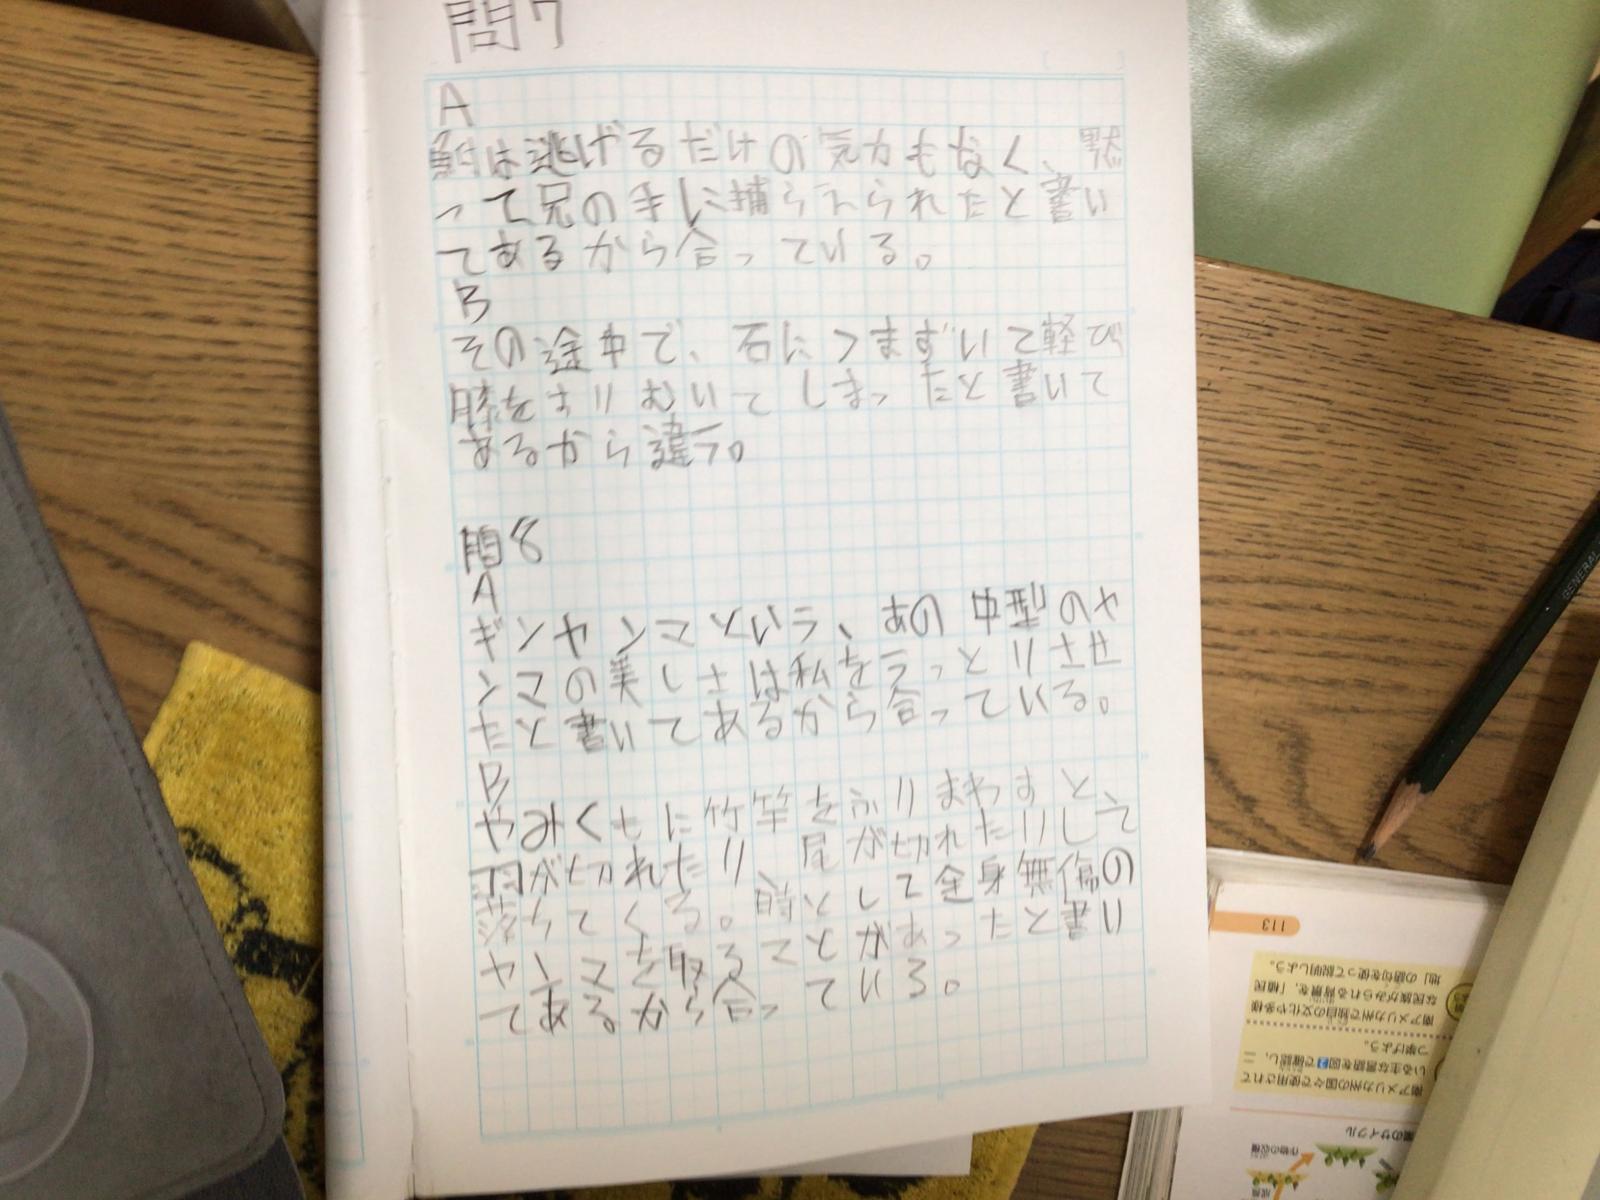 問7
A
魚は逃げるだけの気力もなく、黙
って兄の手に捕らえられたと書い
てあるから合っている。
B
その途中で、石につまずいて軽び
膝をすりむいてしまったと書いて
あるから違う。
問8
A
ギンヤンマという、あの中型のヤ
ンマの美しさは私をうっとりさせ
たと書いてあるから合っている。
B
やみくもに竹竿をふりまわすと、
羽が切れたり、尾が切れたりして
落ちてくる。時として全身無傷の
ヤンマを取ることがあったと書い
てあるから合っている。
113
南アメリカ州の国々で使用されて
いる主な言語を図2で確認し、二
つ挙げよう。
南アメリカ州で独自の文化や多様
な民族がみられる背景を、「植民
地」の語句を使って説明しよう。
のサイクル
作物の収穫
GENERAL